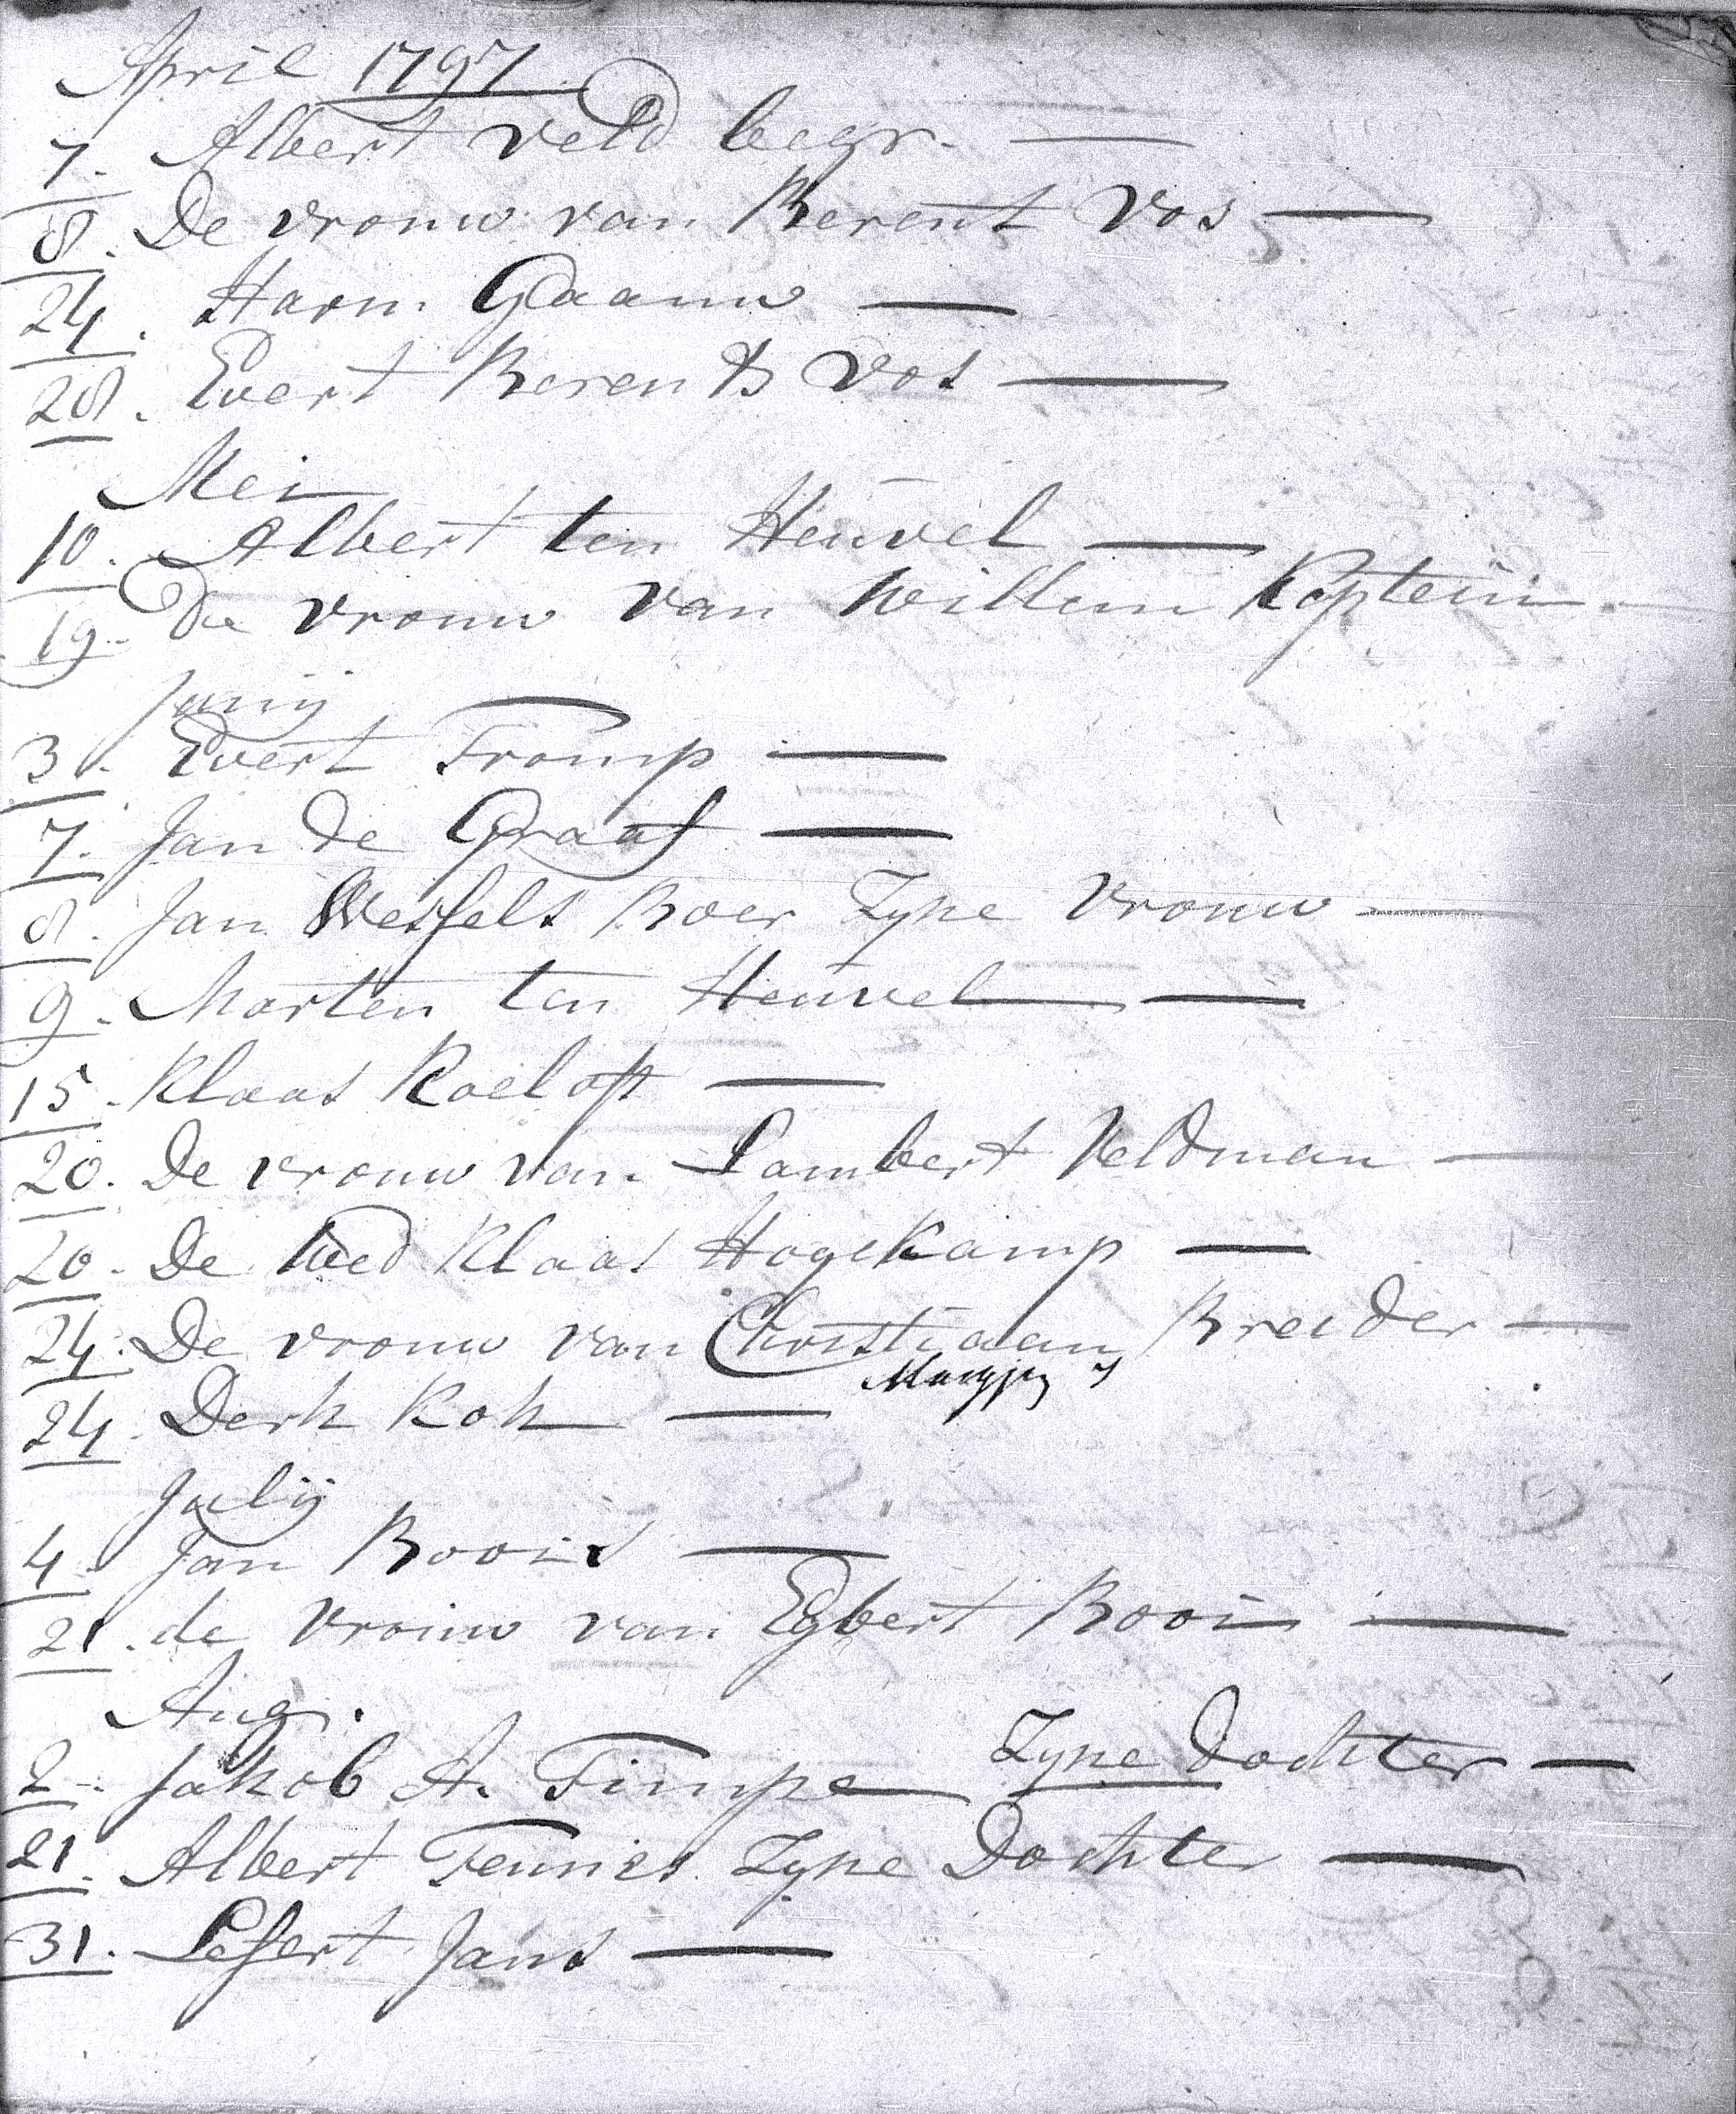 April 1797
7. Albert Veld begr. —
8. De vrouw van Berent Vos —
24. Harm Graauw —
28. Evert Berents Vos —
Mei
10. Albert ten Heuvel —
19. De vrouw van Willem Kaptein
Junij
3. Evert Tromp —
7. Jan de Graaf —
8. Jan Wessels Boer Zyne Vrouw —
9. Marten ten Heuvel —
15. Klaas Roelofs —
20. De vrouw van Lambert Veldman —
20. De Wed Klaas Hogekamp —
24. De vrouw van Christiaan Breider —
24. Derk Kok —
Julij
4. Jan Boois —
21. de vrouw van Egbert Booi —
Aug.
2. Jakob A. Timpe Zyne Dochter —
21. Albert Teunies Zyne Dochter —
31. Lefert Jans —